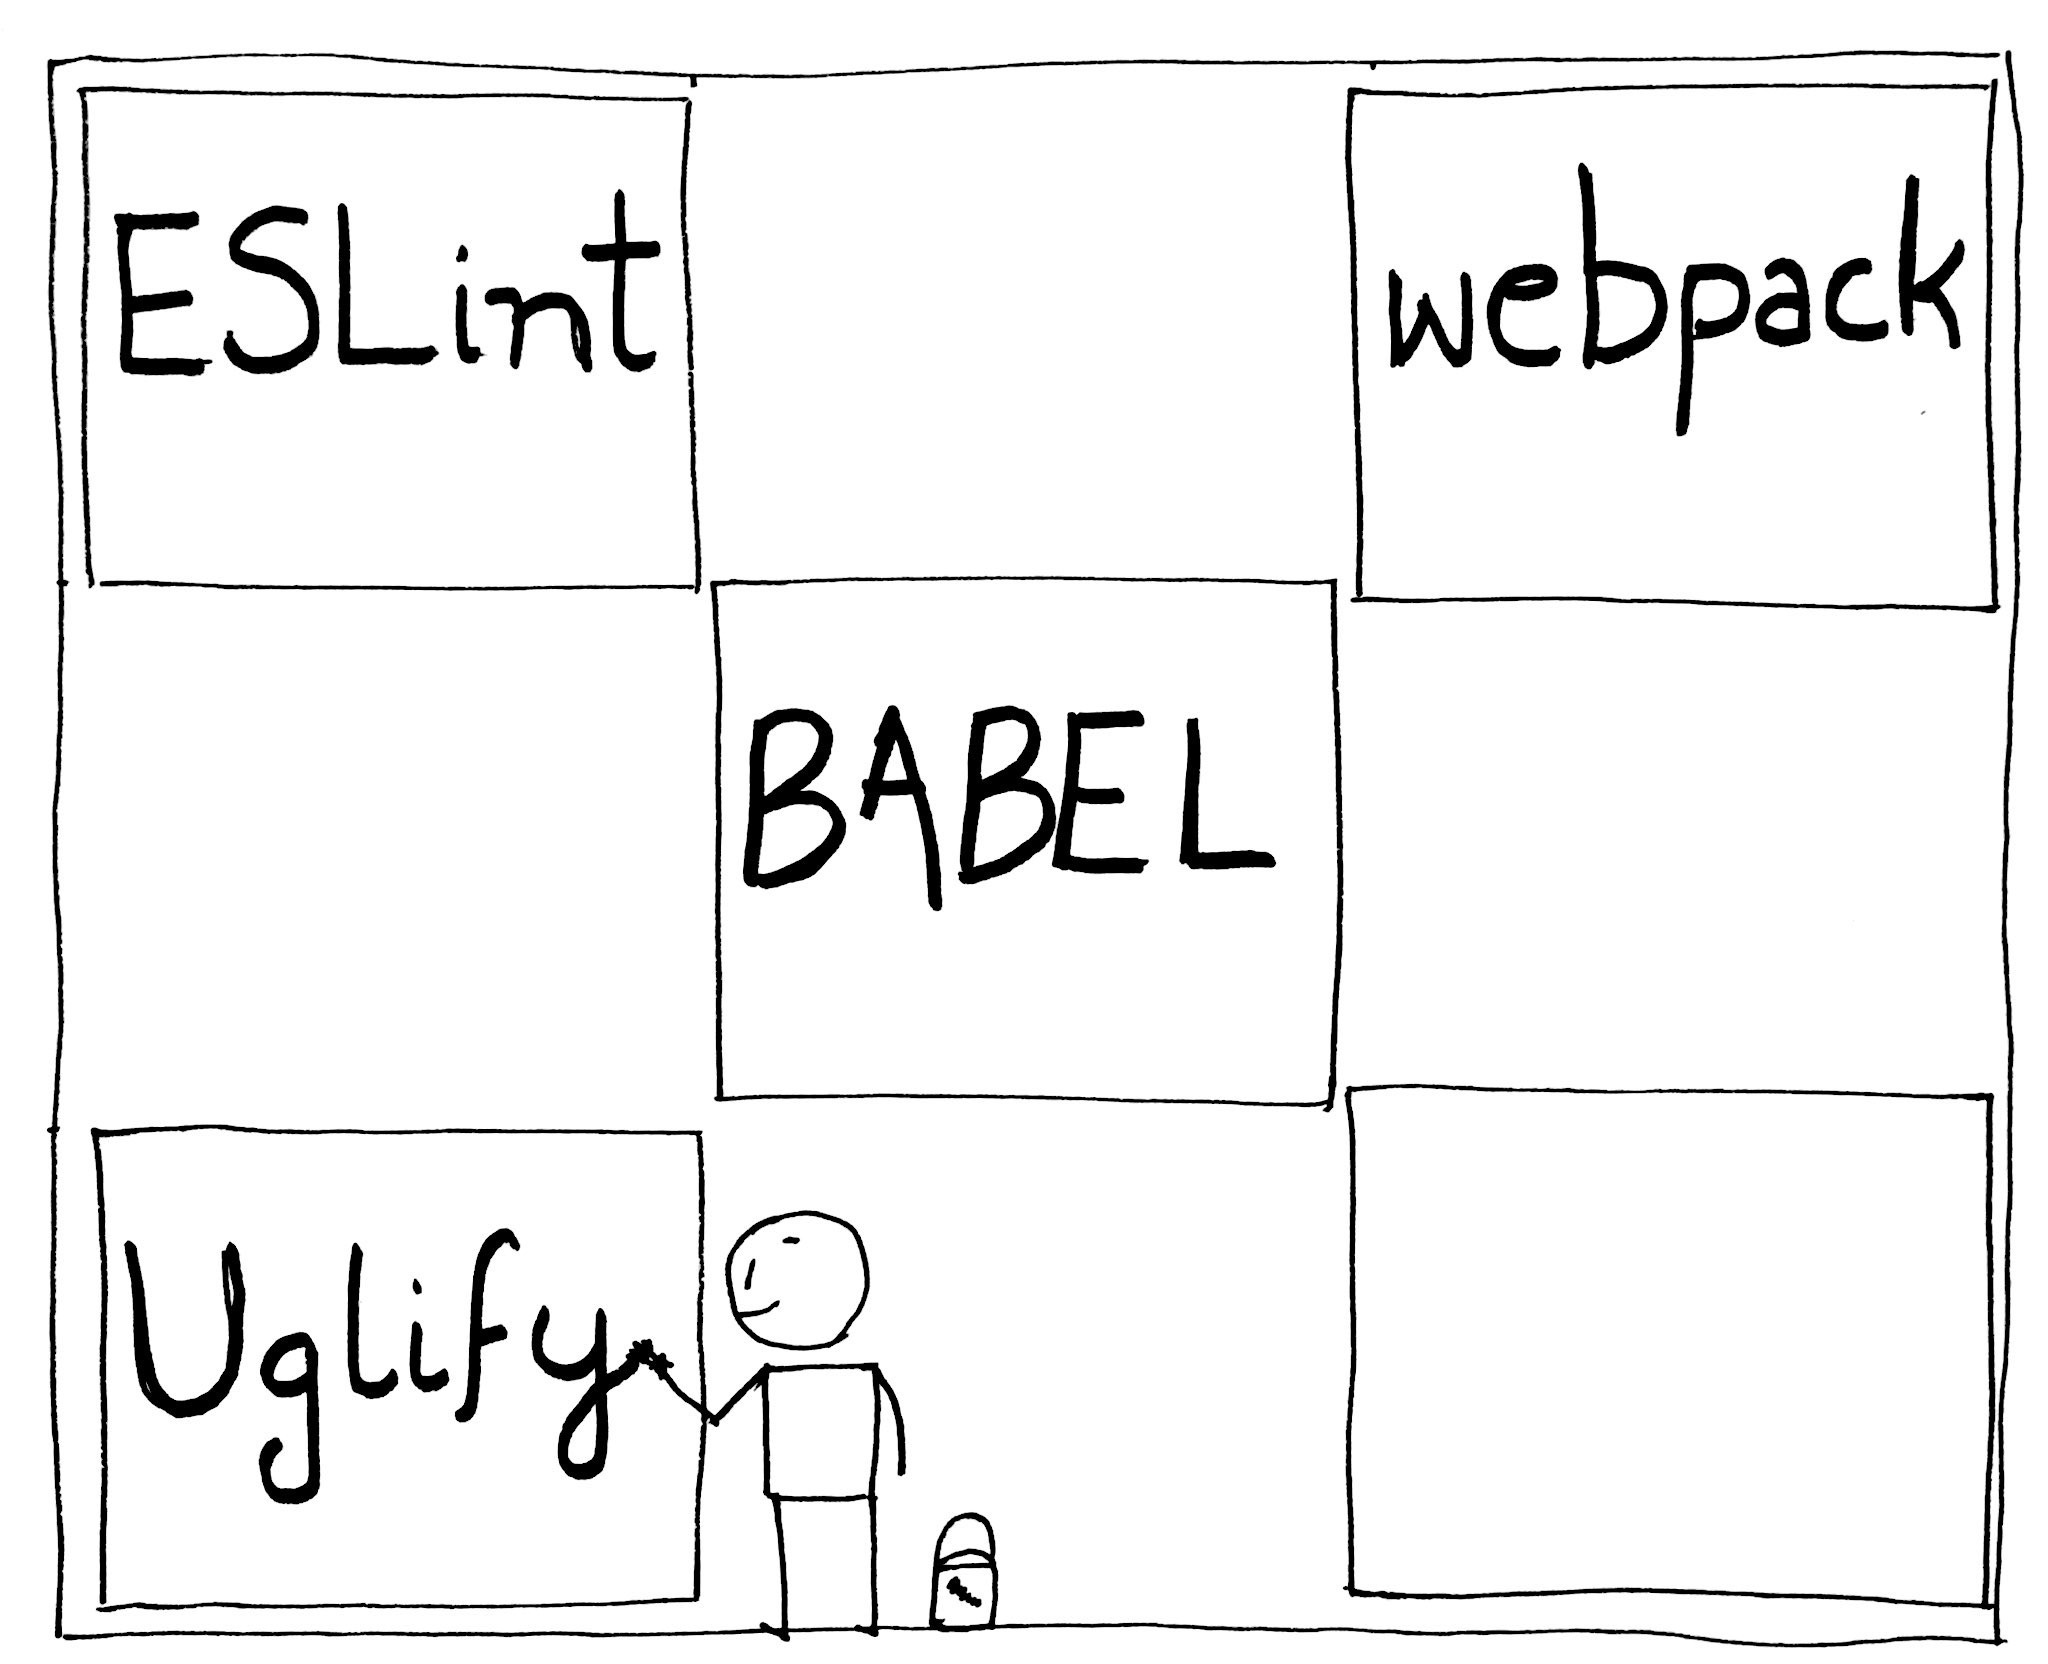 ESLint
webpack
BABEL
Uglify